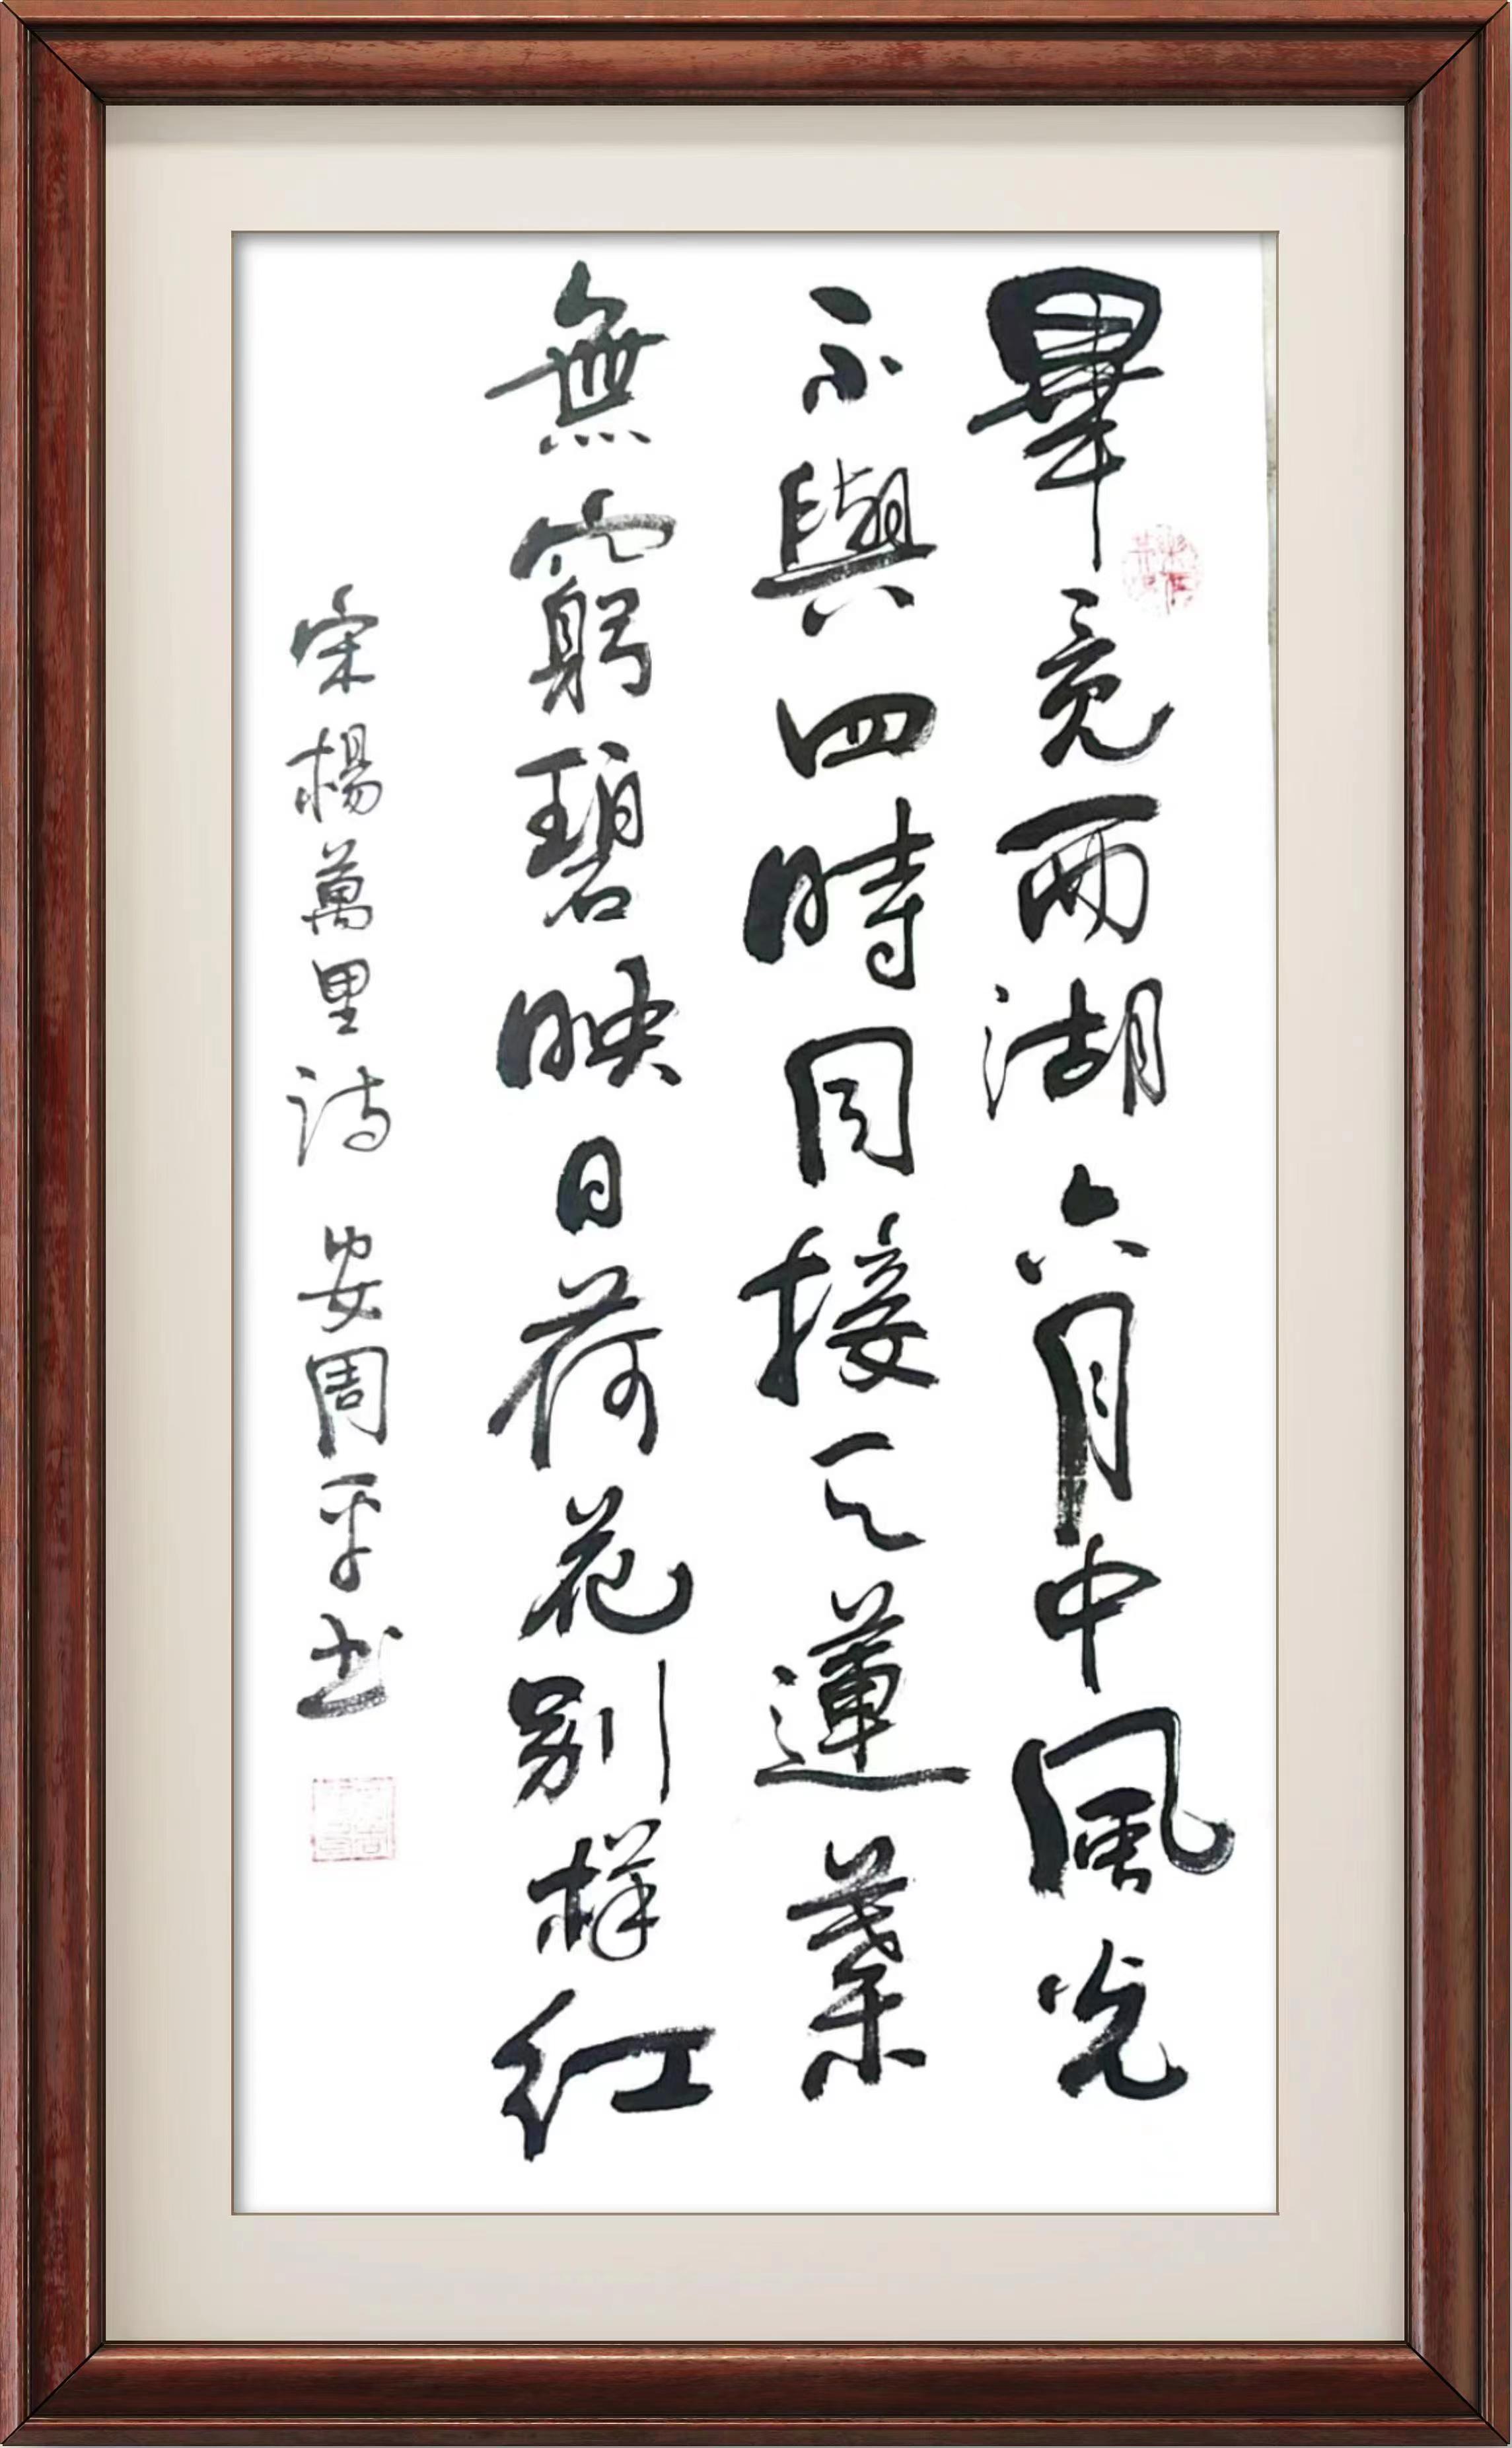 畢竟西湖六月中風光
不與四時同接天蓮葉
無窮碧映日荷花別样红
宋楊萬里诗 安周平书